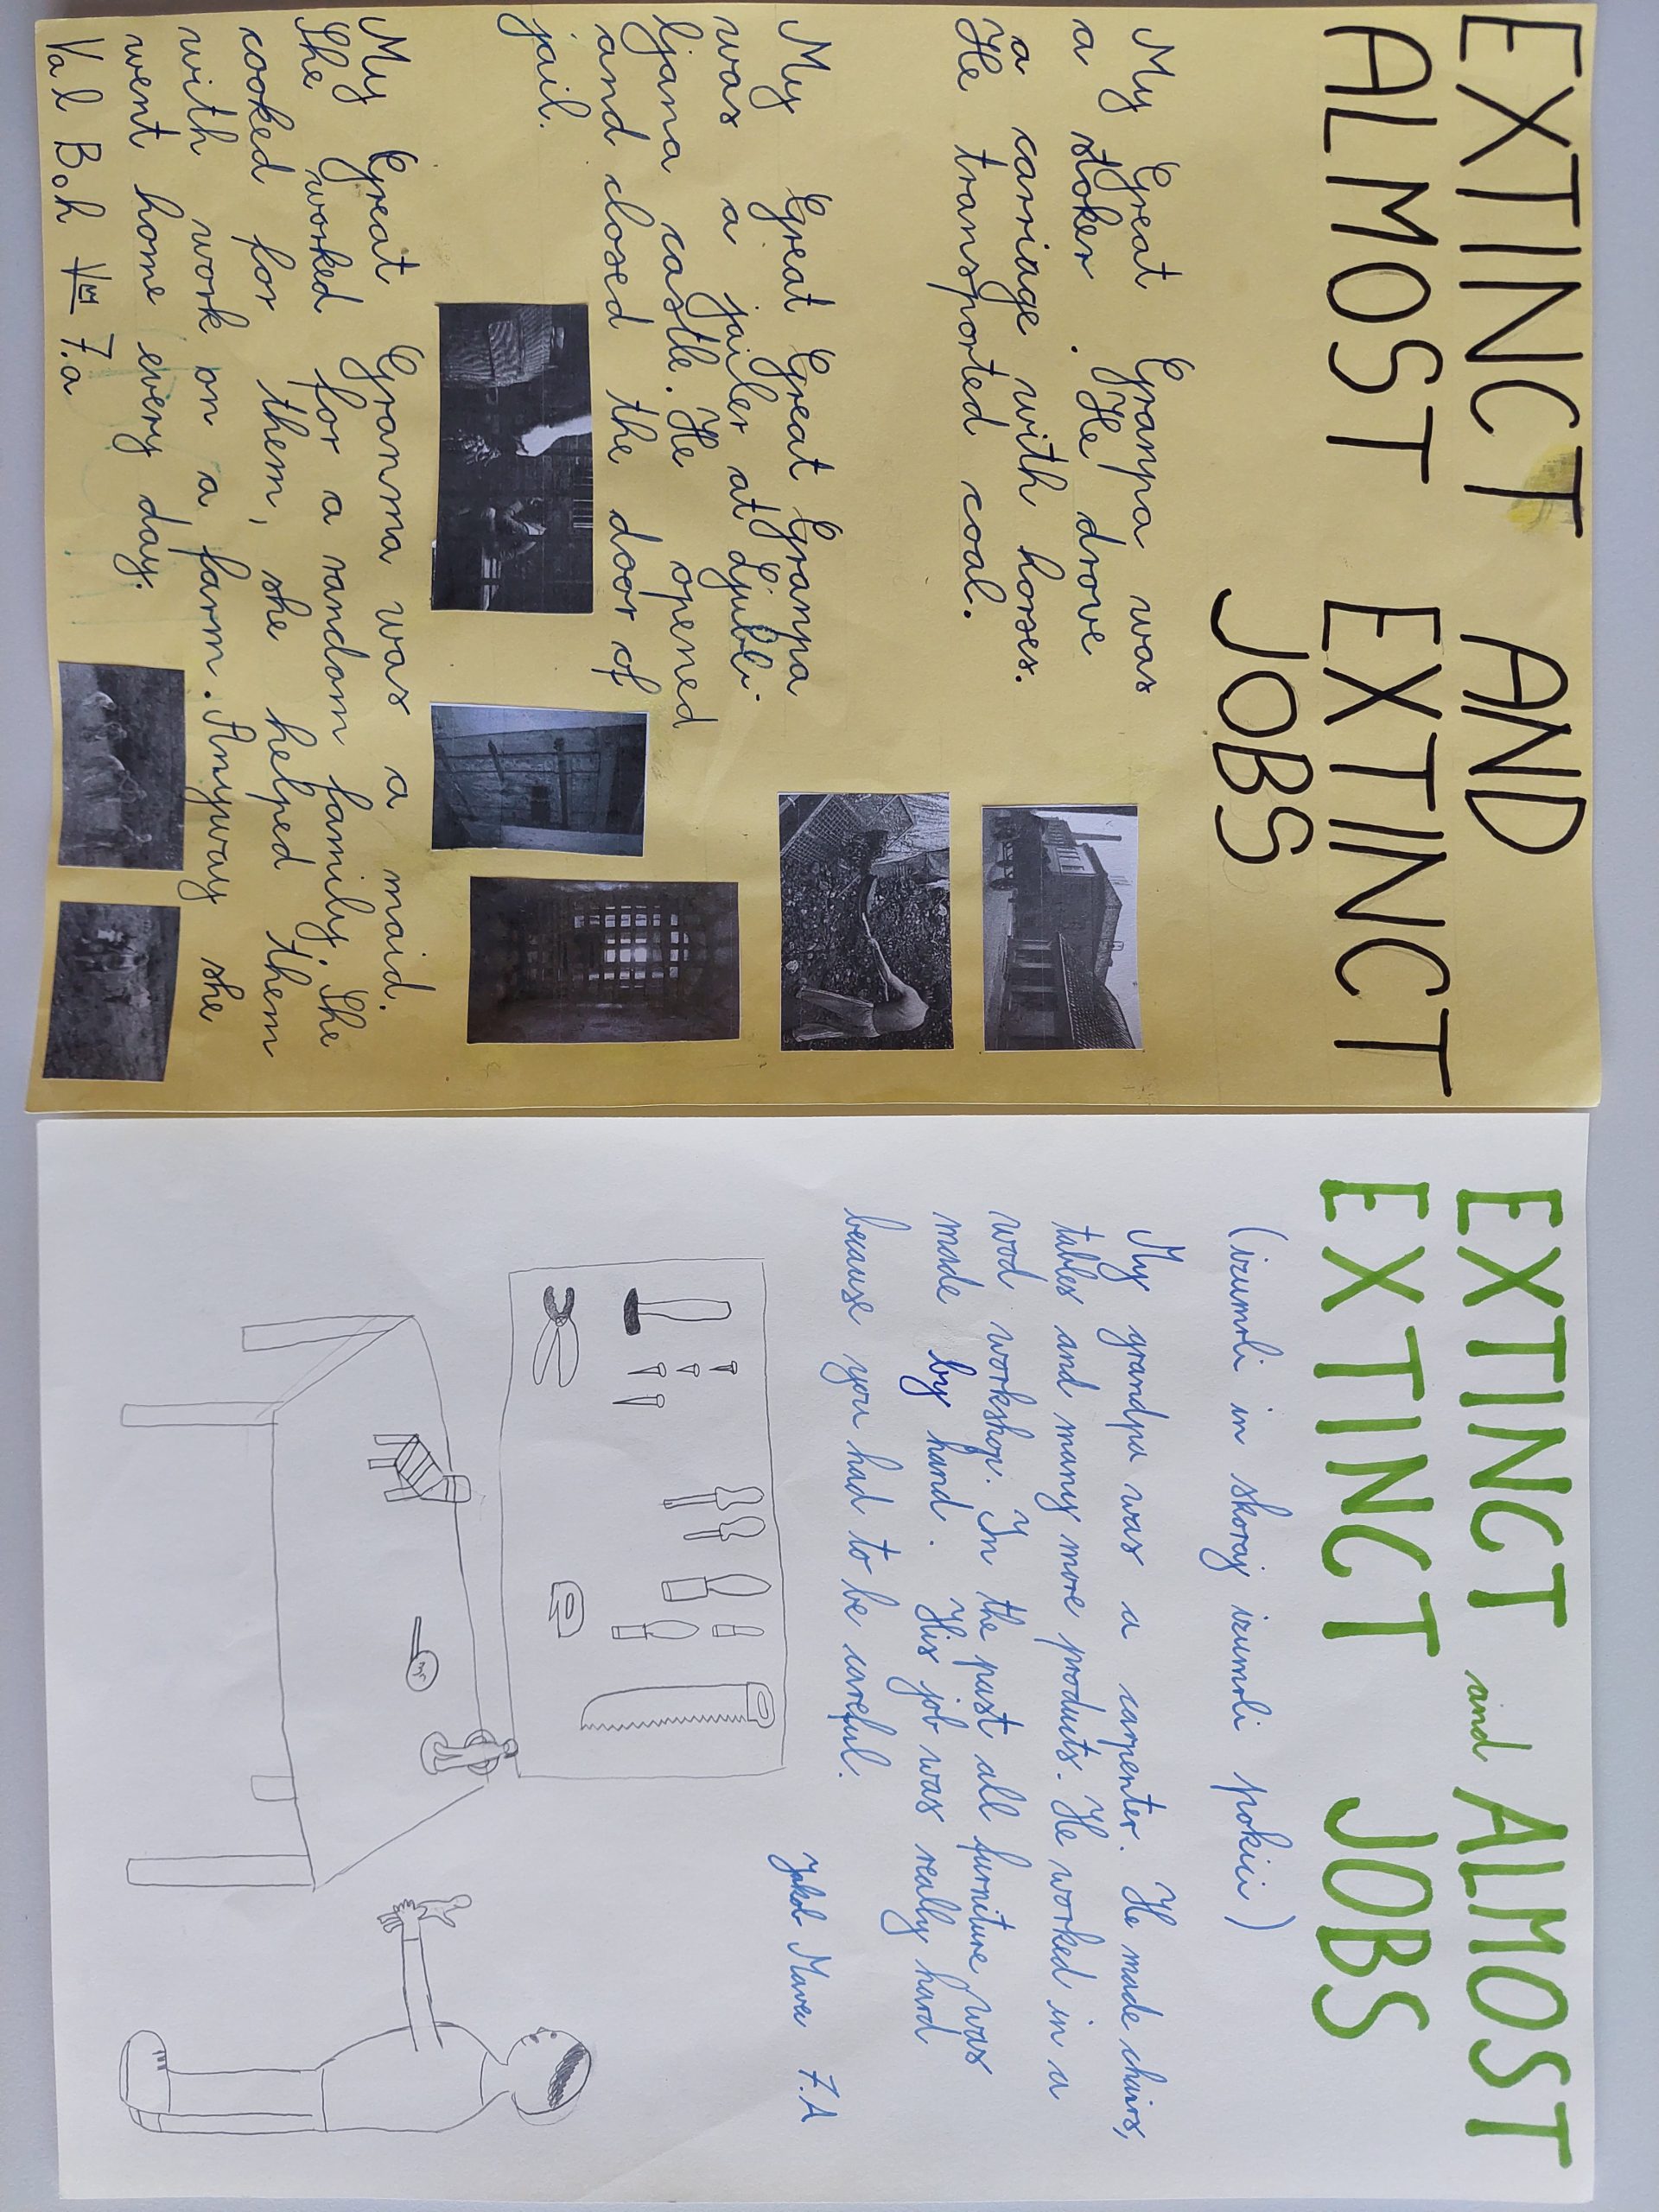 EXTINCT AND
ALMOST EXTINCT
JOBS
My Great Granpa was
a stoker. He drove
a carriage with horses.
He transported coal.
My Great Great Granpa
was a jailer at Ljubli-
ljana castle. He opened
and closed the door of
jail.
My Great Granma was a maid.
She worked for a random family. She
cooked for them, she helped them
with work on a farm. Anyway she
went home every day.
Val Boh 7.a
EXTINCT and ALMOST
EXTINCT JOBS
(izumrli in skoraj izumrli poklici)
My grandpa was a carpenter. He made chairs,
tables and many more products. He worked in a
wod workshop. In the past all furniture was
made by hand. His job was really hard
because you had to be careful.
Jakob Maver 7.A